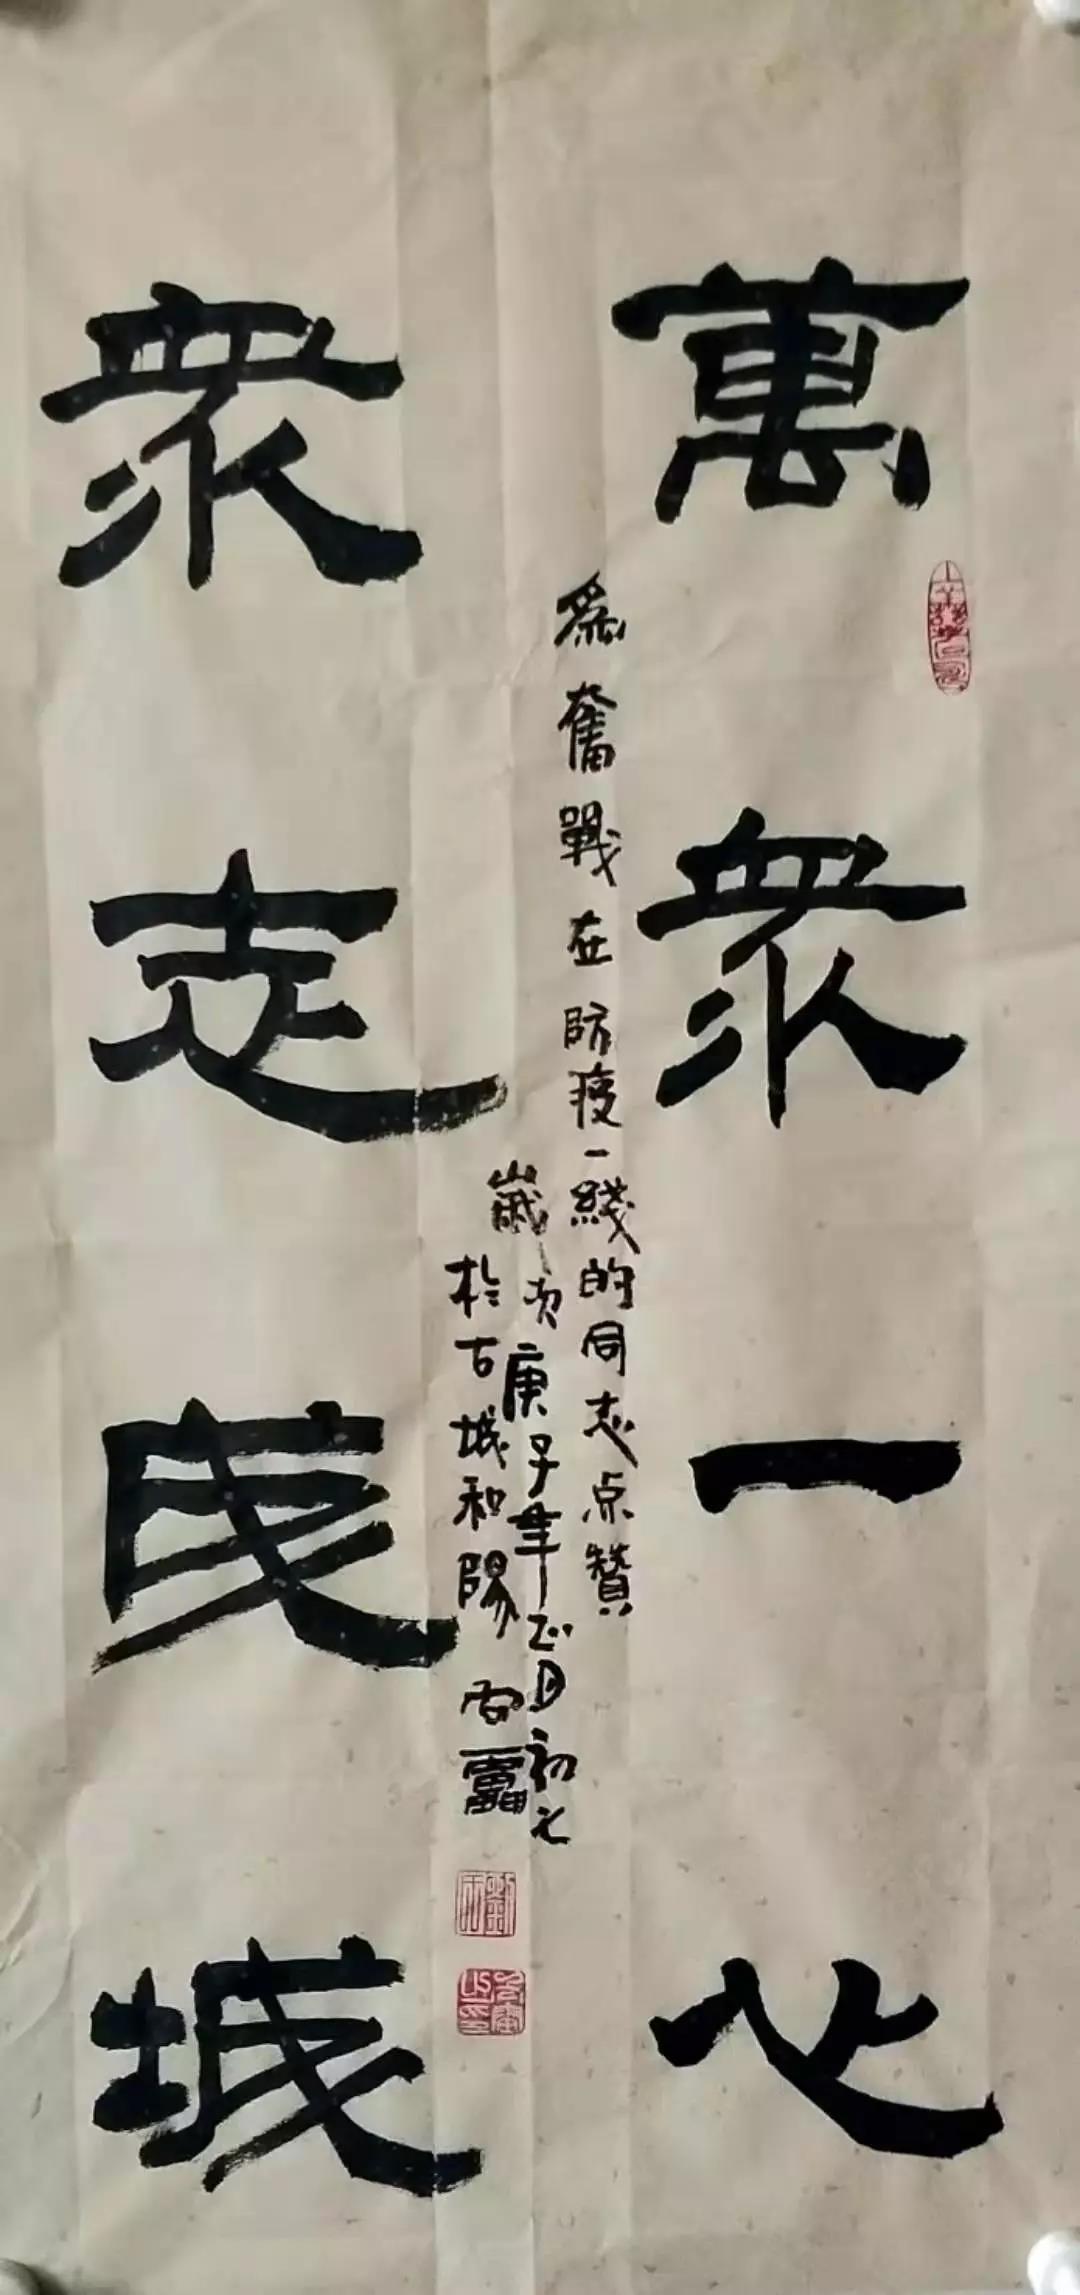 萬衆一心
衆志成城
爲奮戰在防疫一綫的同志点贊
歲次庚子年正月初七
於古城和陽